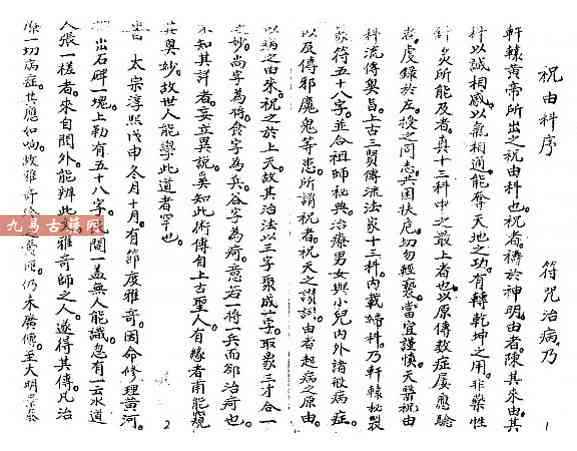 祝由科序
符咒治病乃
軒轅黃帝所出之祝由科也祝者禱於神明由者陳其來由其
以誠相感以氣相通能奪天地之功有轉乾坤之用非藥性
針灸所能及者真十三科中之最上者也以原傳教症屢應驗
虔錄於左授之同志共困扶危切勿輕褻當宜謹慎天醫祝由
科流傳製曷上古三賢傳流法家十三科內載婦科乃軒轅秘製
符五十八字並合祖師秘典治療男女與小兒內外諸般病症
以及傳邪魔鬼等患所謂祝者祝天之讚詞由者起病之原由
以病之由來祝之於上天故其治法以三字聚成一字取象三才合一
之妙尚字為將食字為兵各字為病意若一將一兵而卻治病也
不知其詳者妄立異說奚知此術傳自上古聖人有緣者甫能窺
其奧妙故世人能學此道者罕也
2
1
太宗淳熙戊申冬月十月有節度雅奇因命修理黃河
出石碑一塊上勒有五十八字
蓋無人能識忽有一云水道
人張一槎者來自閬外能辨此文雅奇師之人遂得其傳凡治
療一切病症其應如响故雅奇
仍未廣傳至大明
九易古籍网